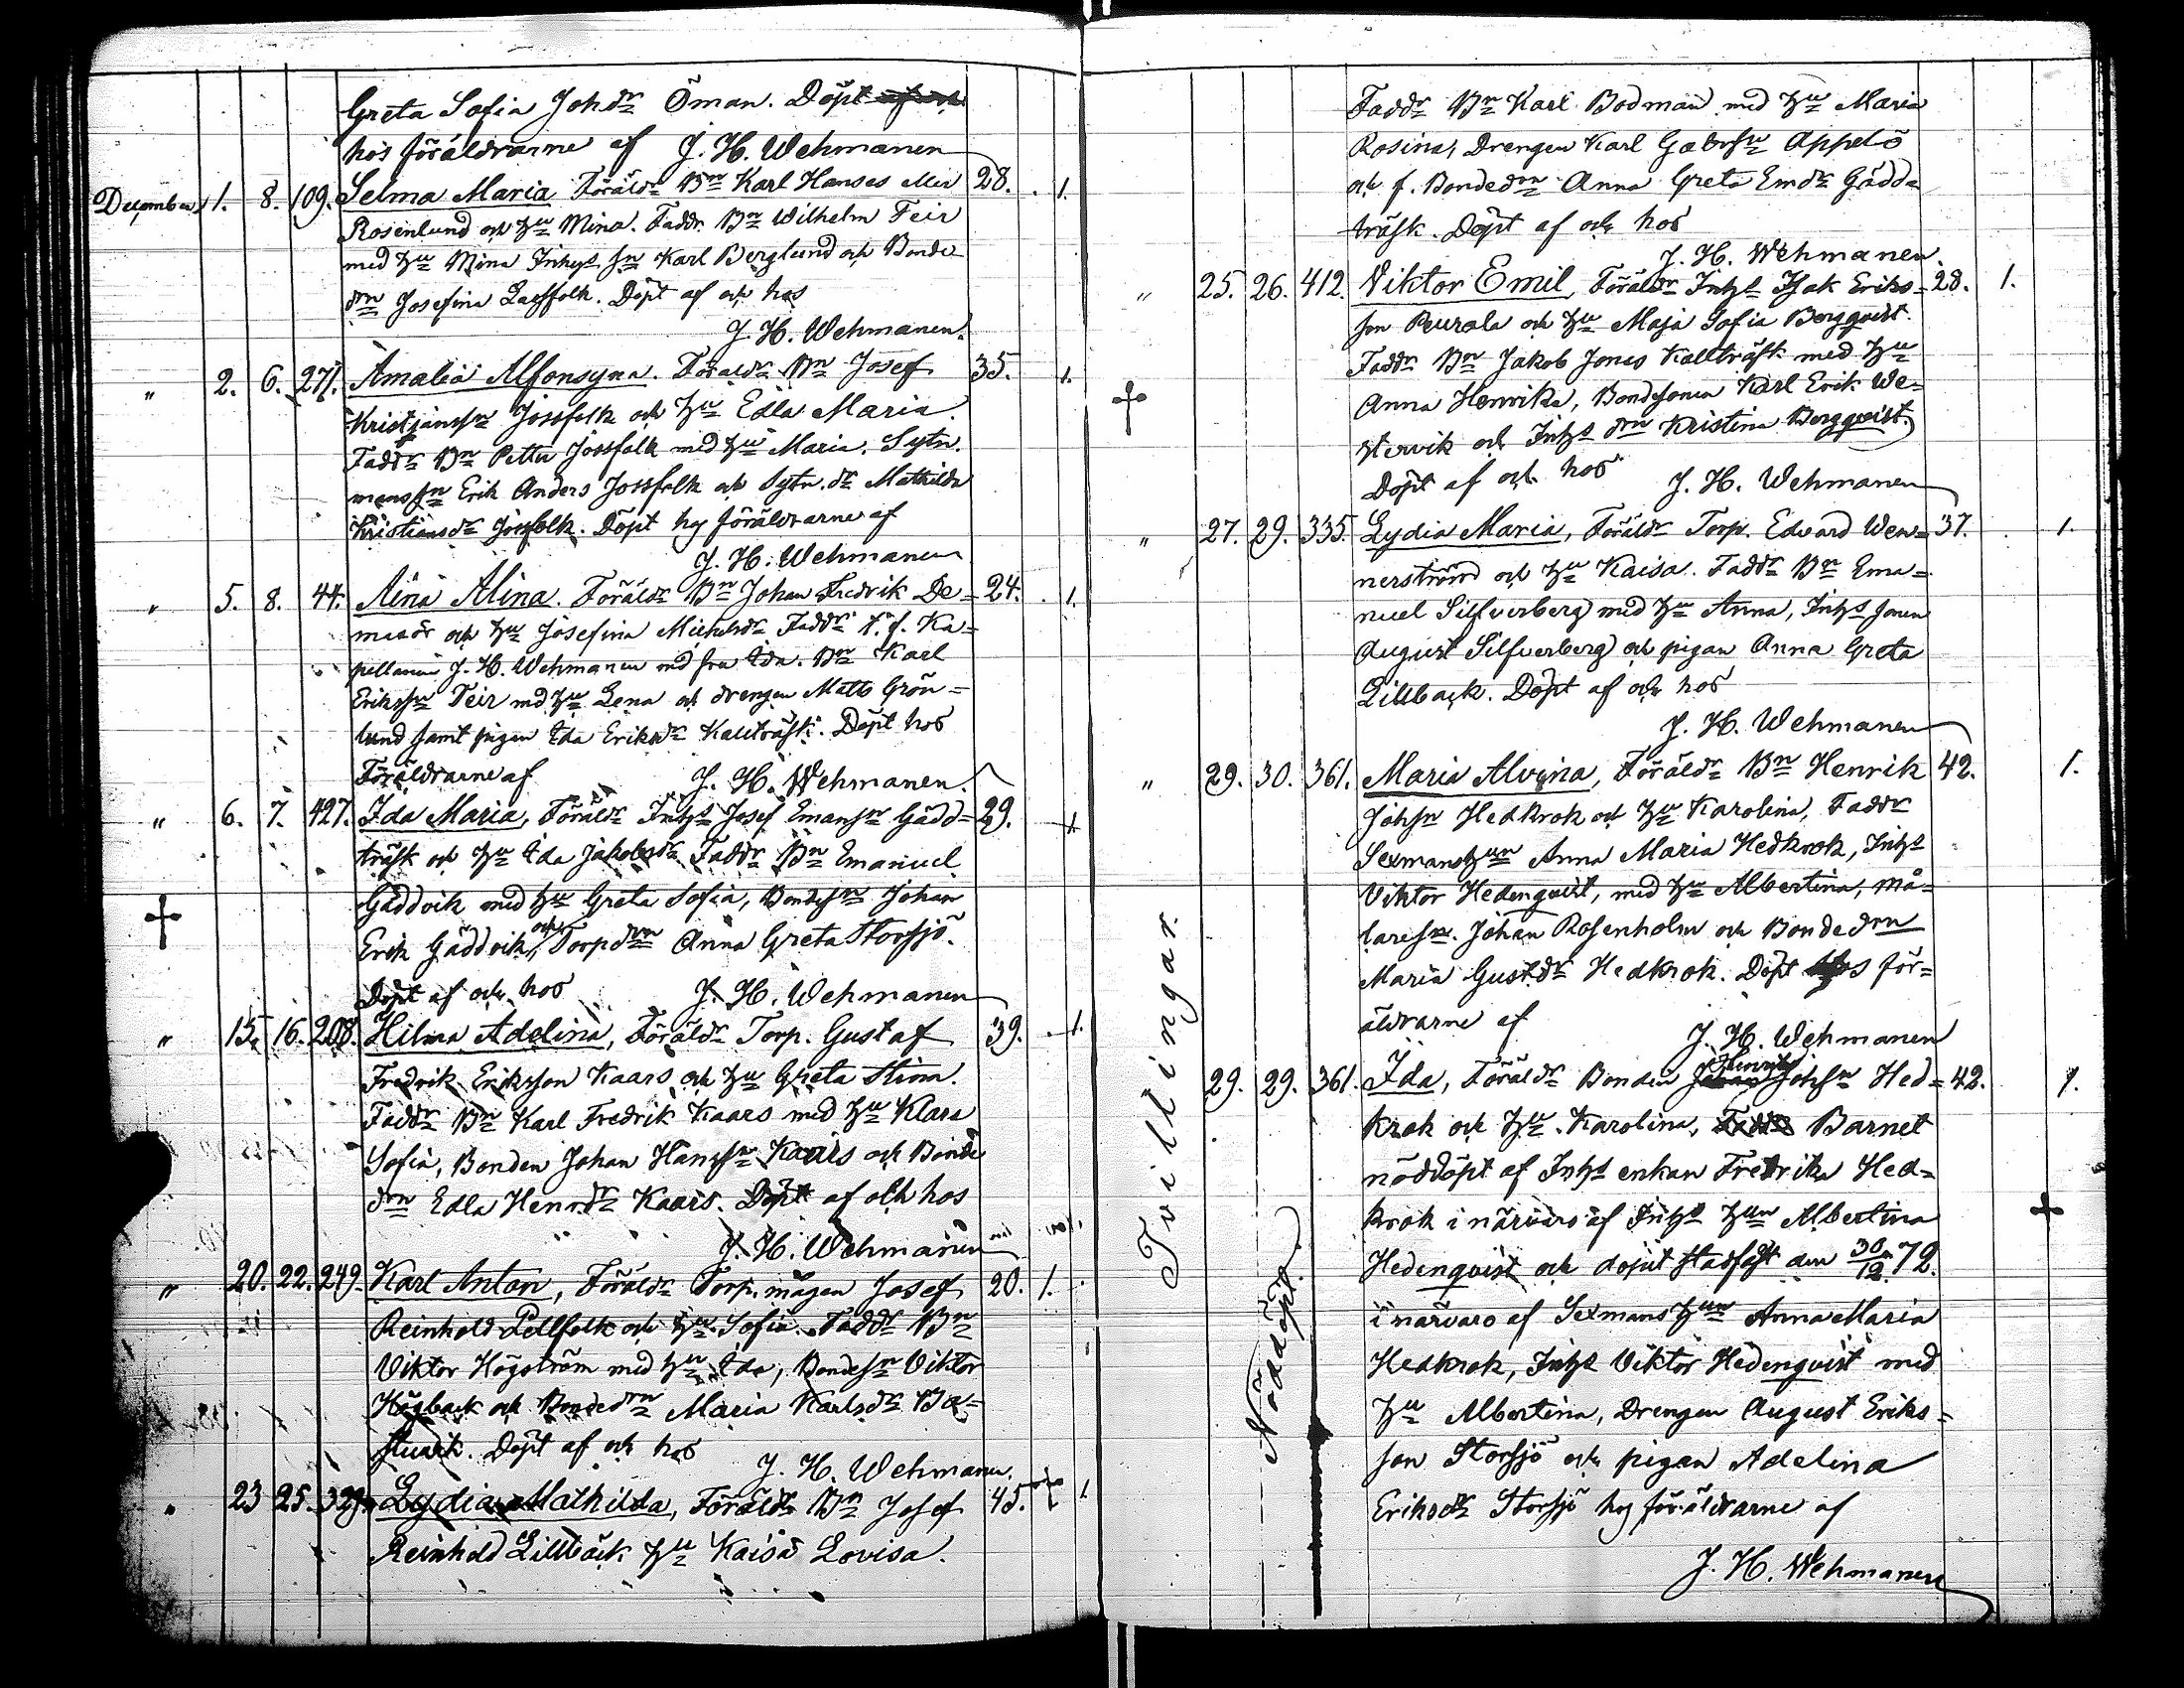 Greta Sofia Johdr Öman. Döpt
hos föräldrarne af J. H. Wehmanen
December 1. 8. 109. Selma Maria Föräldr Bn Karl Hanses eller 28. 1.
Rosenlund och hu Mina. Faddr. Bn Wilhelm Teir
med hu Mina Inhys sn Karl Berglund och Bonde
drn Josefina Laffolk. Döpt af och hos
J. H. Wehmanen.
" 2. 6. 271. Amalia Alfonsyna. Föräldr Bn Josef 35. 1.
Kristjanssn Jossfolk och hu Edla Maria.
Faddr Bn Petter Jossfolk med hu Maria. Sytn.
mans sn Erik Anders Jossfolk och Sytn. dr Mathilda
Kristiansdr Jossfolk. Döpt hos föräldrarne af
J. H. Wehmanen
" 5. 8. 44. Aina Alina. Föräldr Bn Johan Fredrik De= 24. 1.
masör och hu Josefina Michelsdr Faddr t. f. Ka=
pellanen J. H. Wehmanen med fru Ida. Bn Karl
Erikssn Teir med hu Lena och drengen Matts Grön=
lund samt pigan Ida Eriksdr Kallträsk. Döpt hos
Föräldrarne af J. H. Wehmanen.
" 6. 7. 427. Ida Maria, Föräldr Inhs Josef Emanssn Gädd= 29. 1.
träsk och hu Ida Jakobsdr Faddr Bn Emanuel
Gäddvik med hu Greta Sofia, Bondesn Johan
Erik Gäddvik, och Torpdrn Anna Greta Storsjö.
Döpt af och hos J. H. Wehmanen
" 15. 16. 208. Hilma Adelina, Föräldr Torp. Gustaf 39. 1.
Fredrik Eriksson Kaars och hu Greta Stina.
Faddr Bn Karl Fredrik Kaars med hu Klara
Sofia, Bonden Johan Hanssn Kaars och Bonde
drn Edla Henr.dr Kaars. Döpt af och hos
J. H. Wehmanen
" 20. 22. 249. Karl Anton, Föräldr Torp. mågen Josef 20. 1.
Reinhold Pellfolk och hu Sofia. Faddr Bn
Viktor Högström med hu Ida, Bondesn Viktor
Högback och Bondedrn Maria Karlsdr Ba=
stuback. Döpt af och hos
J. H. Wehmanen.
" 23 25. 329. Lydia Mathilda, Föräldr Bn Josef 45. 1.
Reinhold Lillbäck hu Kaisa Lovisa.
Faddr Bn Karl Bodman med hu Maria
Rosina, Drengen Karl Gabrsn Appelö
och f. Bondedrn Anna Greta Emdr Gädda
träsk. Döpt af och hos
J. H. Wehmanen.
" 25. 26. 412. Viktor Emil, Föräldr Inhs Isak Eriks= 28. 1.
son Peurala och hu Maja Sofia Bergqvist.
Faddr Bn Jakob Jonas Kallträsk med hu
Anna Henrika, Bondesonen Karl Erik We=
stervik och Inhs drn Kristina Bergqvist.
Döpt af och hos J. H. Wehmanen
" 27. 29. 335. Lydia Maria, Föräldr Torp. Edvard Wen= 37. 1.
nerström och hu Kaisa. Faddr Bn Ema=
nuel Silfverberg med hu Anna, Inhs sonen
August Silfverberg och pigan Anna Greta
Lillback. Döpt af och hos
J. H. Wehmanen
" 29. 30. 361. Maria Alvina, Föräldr Bn Henrik 42. 1.
Johsn Hedkrok och hu Karolina, Faddr
Sexmanshun Anna Maria Hedkrok, Inhs
Viktor Hedenqvist, med hu Albertina, må=
laresn. Johan Rosenholm och Bondedrn
Maria Gust.dr Hedkrok. Döpt hos för=
äldrarne af
J. H. Wehmanen
Tvillingar.
29. 29. 361. Ida, Föräldr Bonden Henrik Johsn Hed= 42. 1.
krok och hu Karolina, Barnet
nöddöpt af Inhs enkan Fredrika Hed=
krok i närvaro af Inhs hun Albertina
Hedenqvist och dopet stadfäst den 30/12 72.
i närvaro af Sexmans hun Anna Maria
Hedkrok, Inhs Viktor Hedenqvist med
hu Albertina, Drengen August Eriks=
son Storsjö och pigan Adelina
Eriksdr Storsjö hos föräldrarne af
J. H. Wehmanen
Nöddöpt.